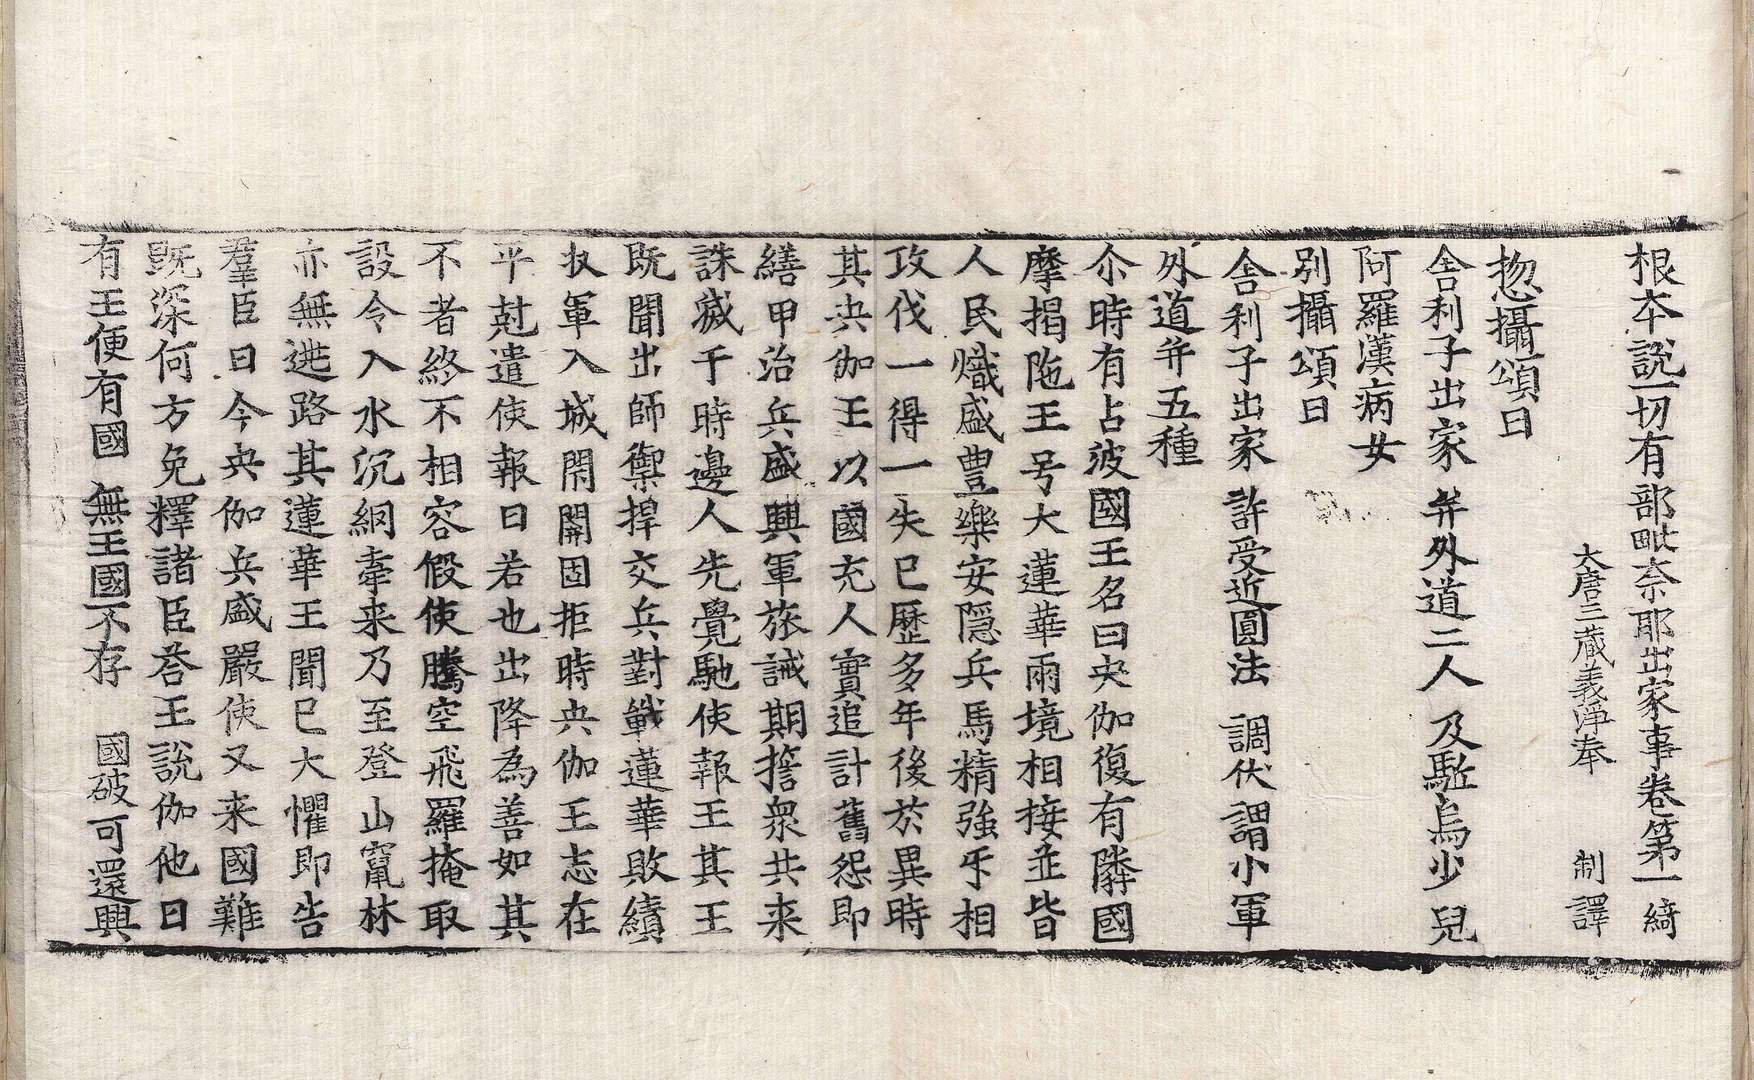 根本說一切有部毗奈耶出家事卷第一 綺
大唐三藏義淨奉 制譯
惣攝頌曰
舍利子出家 并外道二人 及驅烏少兒
阿羅漢病女
別攝頌曰
舍利子出家 許受近圓法 調伏謂小軍
外道并五種
尒時有占波國王名曰央伽復有隣國
摩揭陁王号大蓮華兩境相接並皆
人民熾盛豊樂安隱兵馬精強乎相
攻伐一得一失已歷多年後於異時
其央伽王以國充人實追計舊怨即
繕甲治兵盛興軍旅誡期誓衆共来
誅滅于時邊人先覺馳使報王其王
既聞出師禦捍交兵對戰蓮華敗績
扙軍入城閇關固拒時央伽王志在
平尅遣使報曰若也出降為善如其
不者終不相容假使騰空飛羅掩取
設令入水沉網牽来乃至登山竄林
亦無逃路其蓮華王聞已大懼即告
羣臣曰今央伽兵盛嚴使又来國難
既深何方免釋諸臣荅王說伽他曰
有王便有國 無王國不存 國破可還興